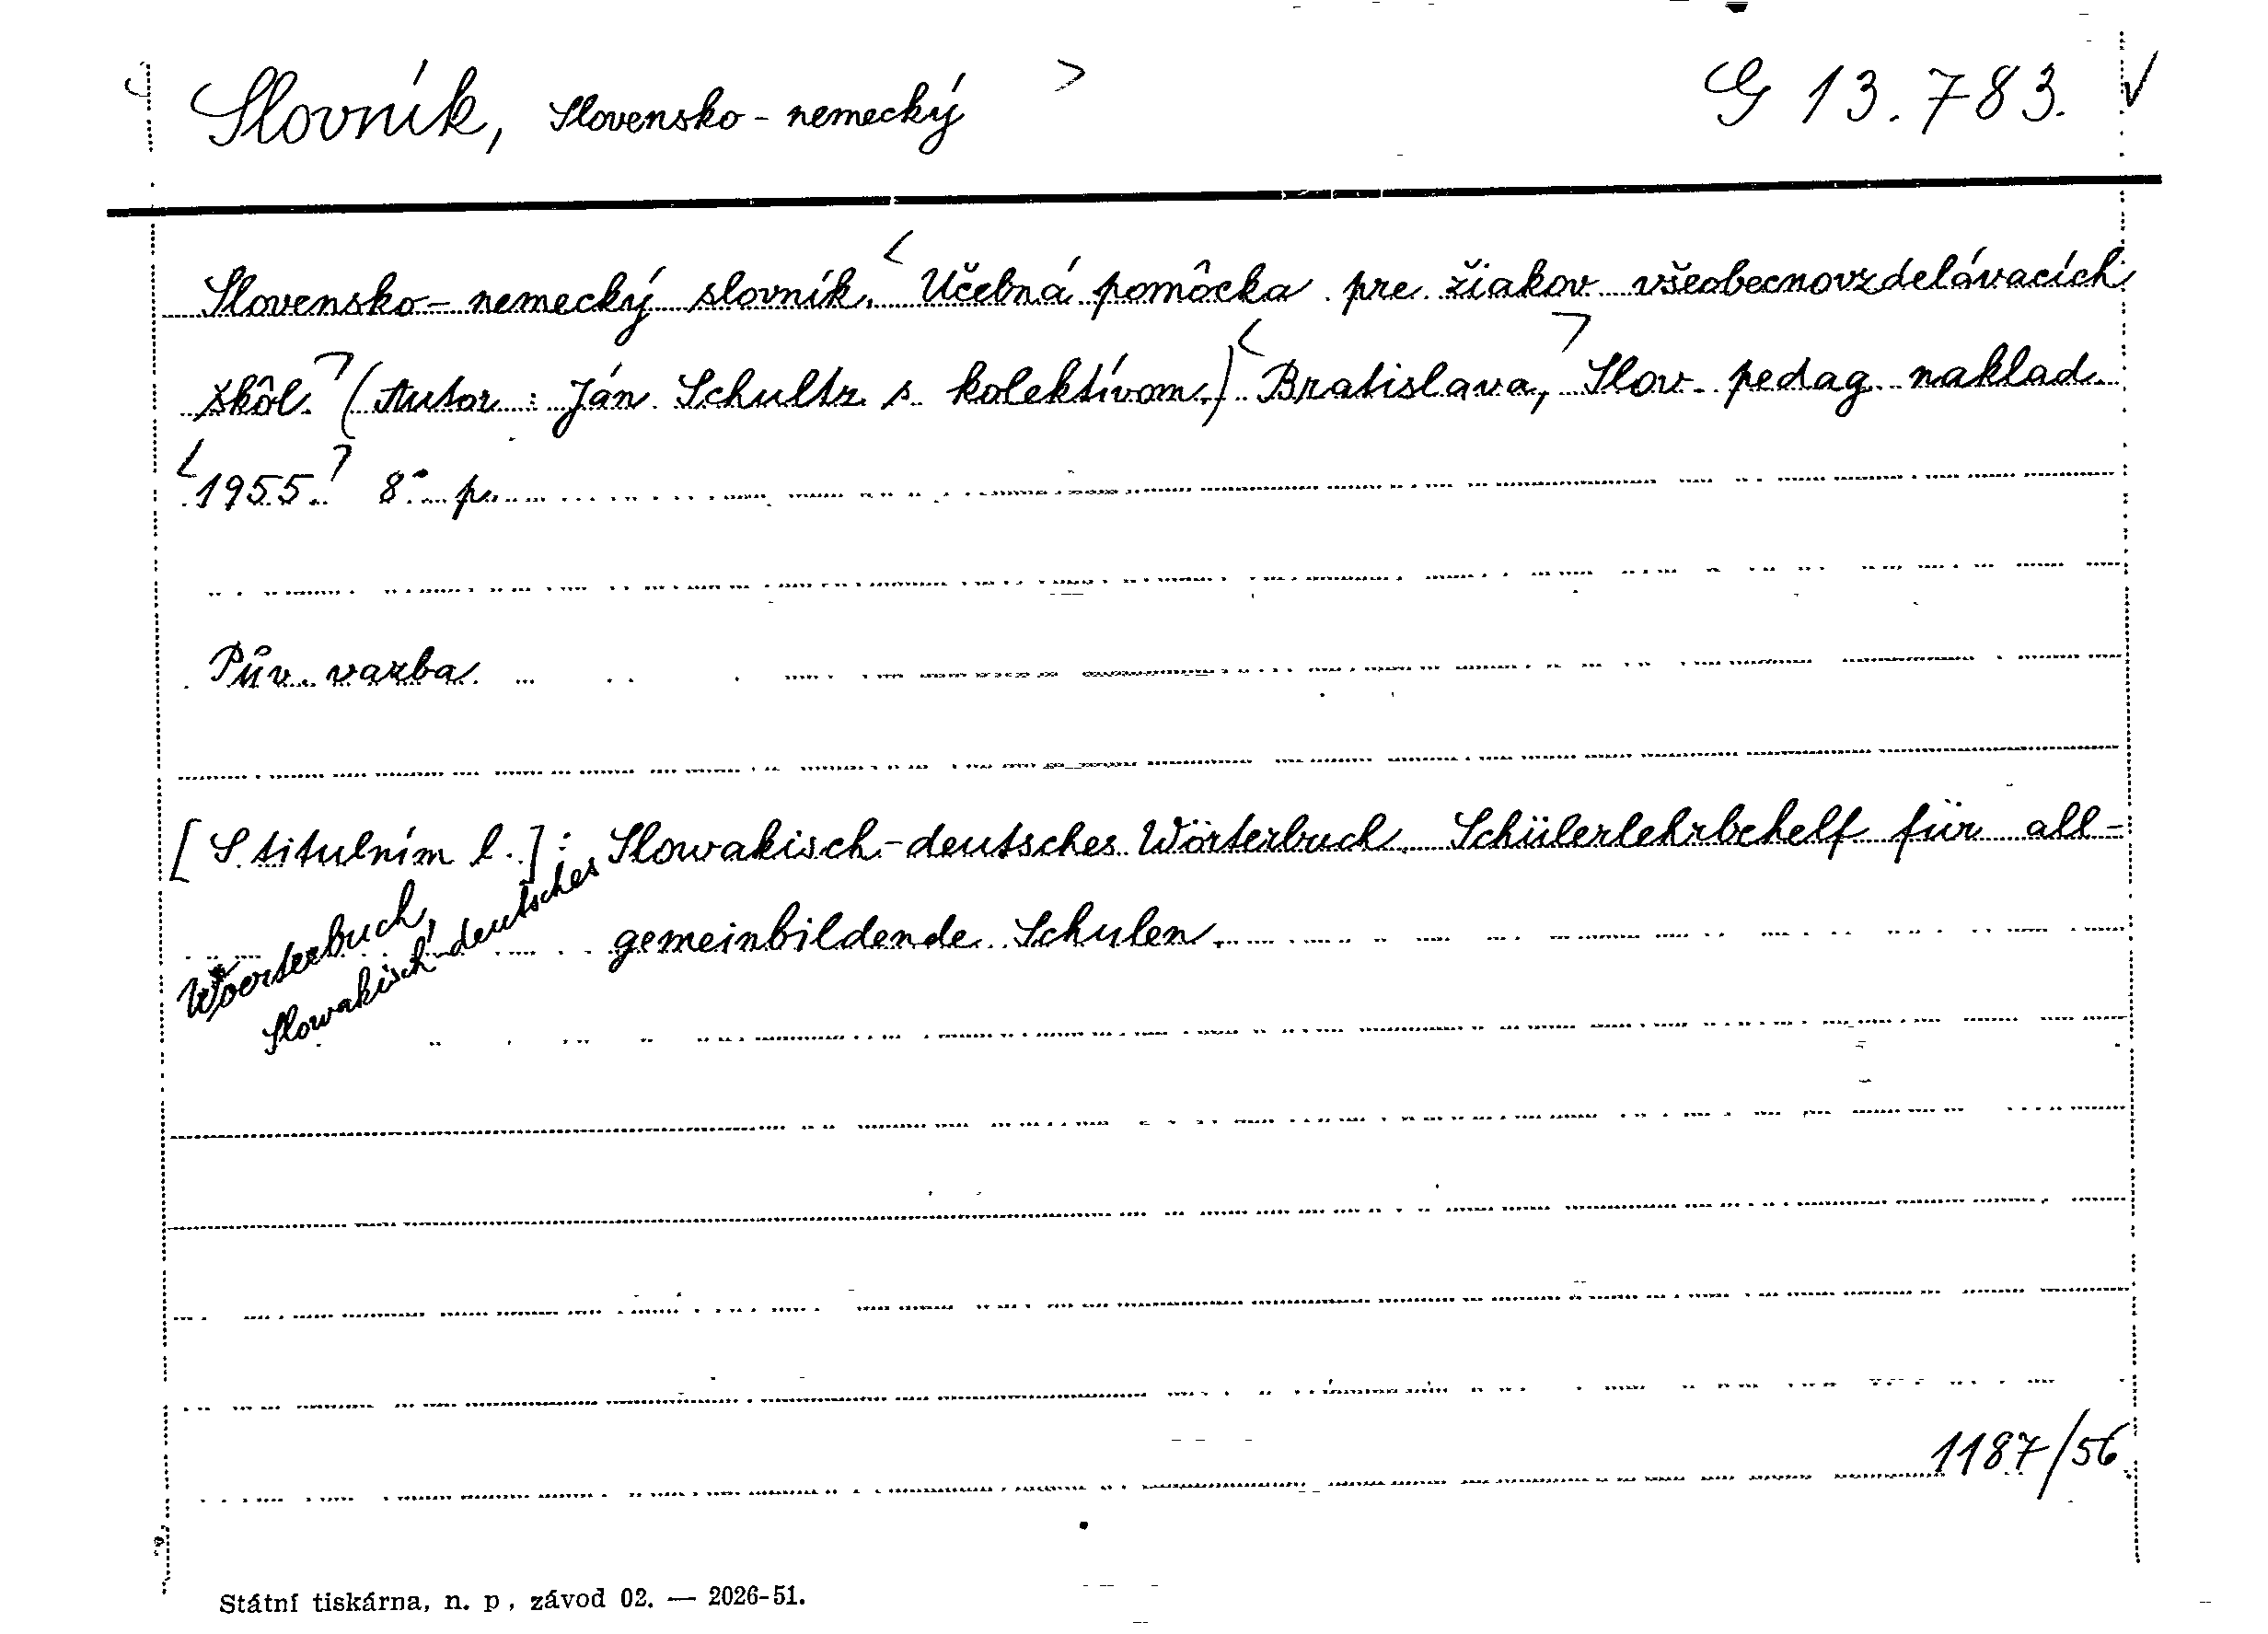 Slovník, Slovensko-nemecký > G 13.783. √
Slovensko-nemecký slovník. Učebná pomôcka pre žiakov všeobecnovzdelávacích
škôl. (Autor: Ján Schultz s kolektívom.) Bratislava, Slov. pedag. naklad.
1955. 8° p.
Pův. vazba.
[S titulním l.]: Slowakisch-deutsches Wörterbuch. Schülerlehrbehelf für all-
gemeinbildende Schulen.
Woerterbuch,
Slowakisch-deutsches
1187/56
Státní tiskárna, n. p., závod 02. — 2026-51.